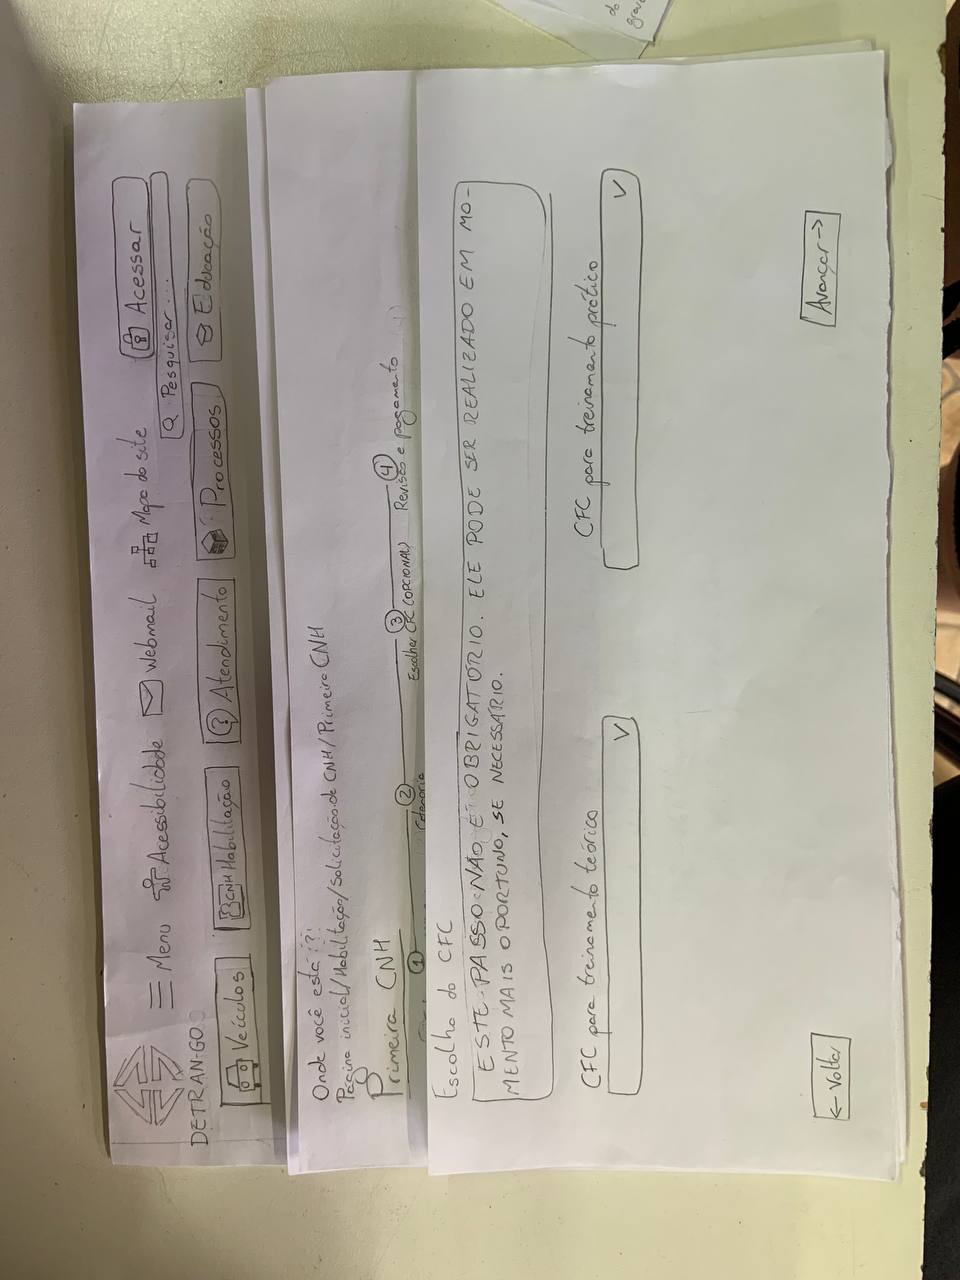 Menu
Acessibilidade
Webmail
Mapa do site
Acessar
Pesquisar...
DETRAN-GO
Veículos
CNH Habilitação
? Atendimento
Processos
Educação
Onde você está ?
Página inicial/Habilitação/Solicitação de CNH/Primeira CNH
Primeira CNH
1
2
3
4
Categoria
Escolher CFC (OPCIONAL)
Revisão e pagamento
Escolha do CFC
ESTE PASSO NÃO É OBRIGATÓRIO. ELE PODE SER REALIZADO EM MO-
MENTO MAIS OPORTUNO, SE NECESSÁRIO.
CFC para treinamento teórico
CFC para treinamento prático
← Voltar
Avançar →
do